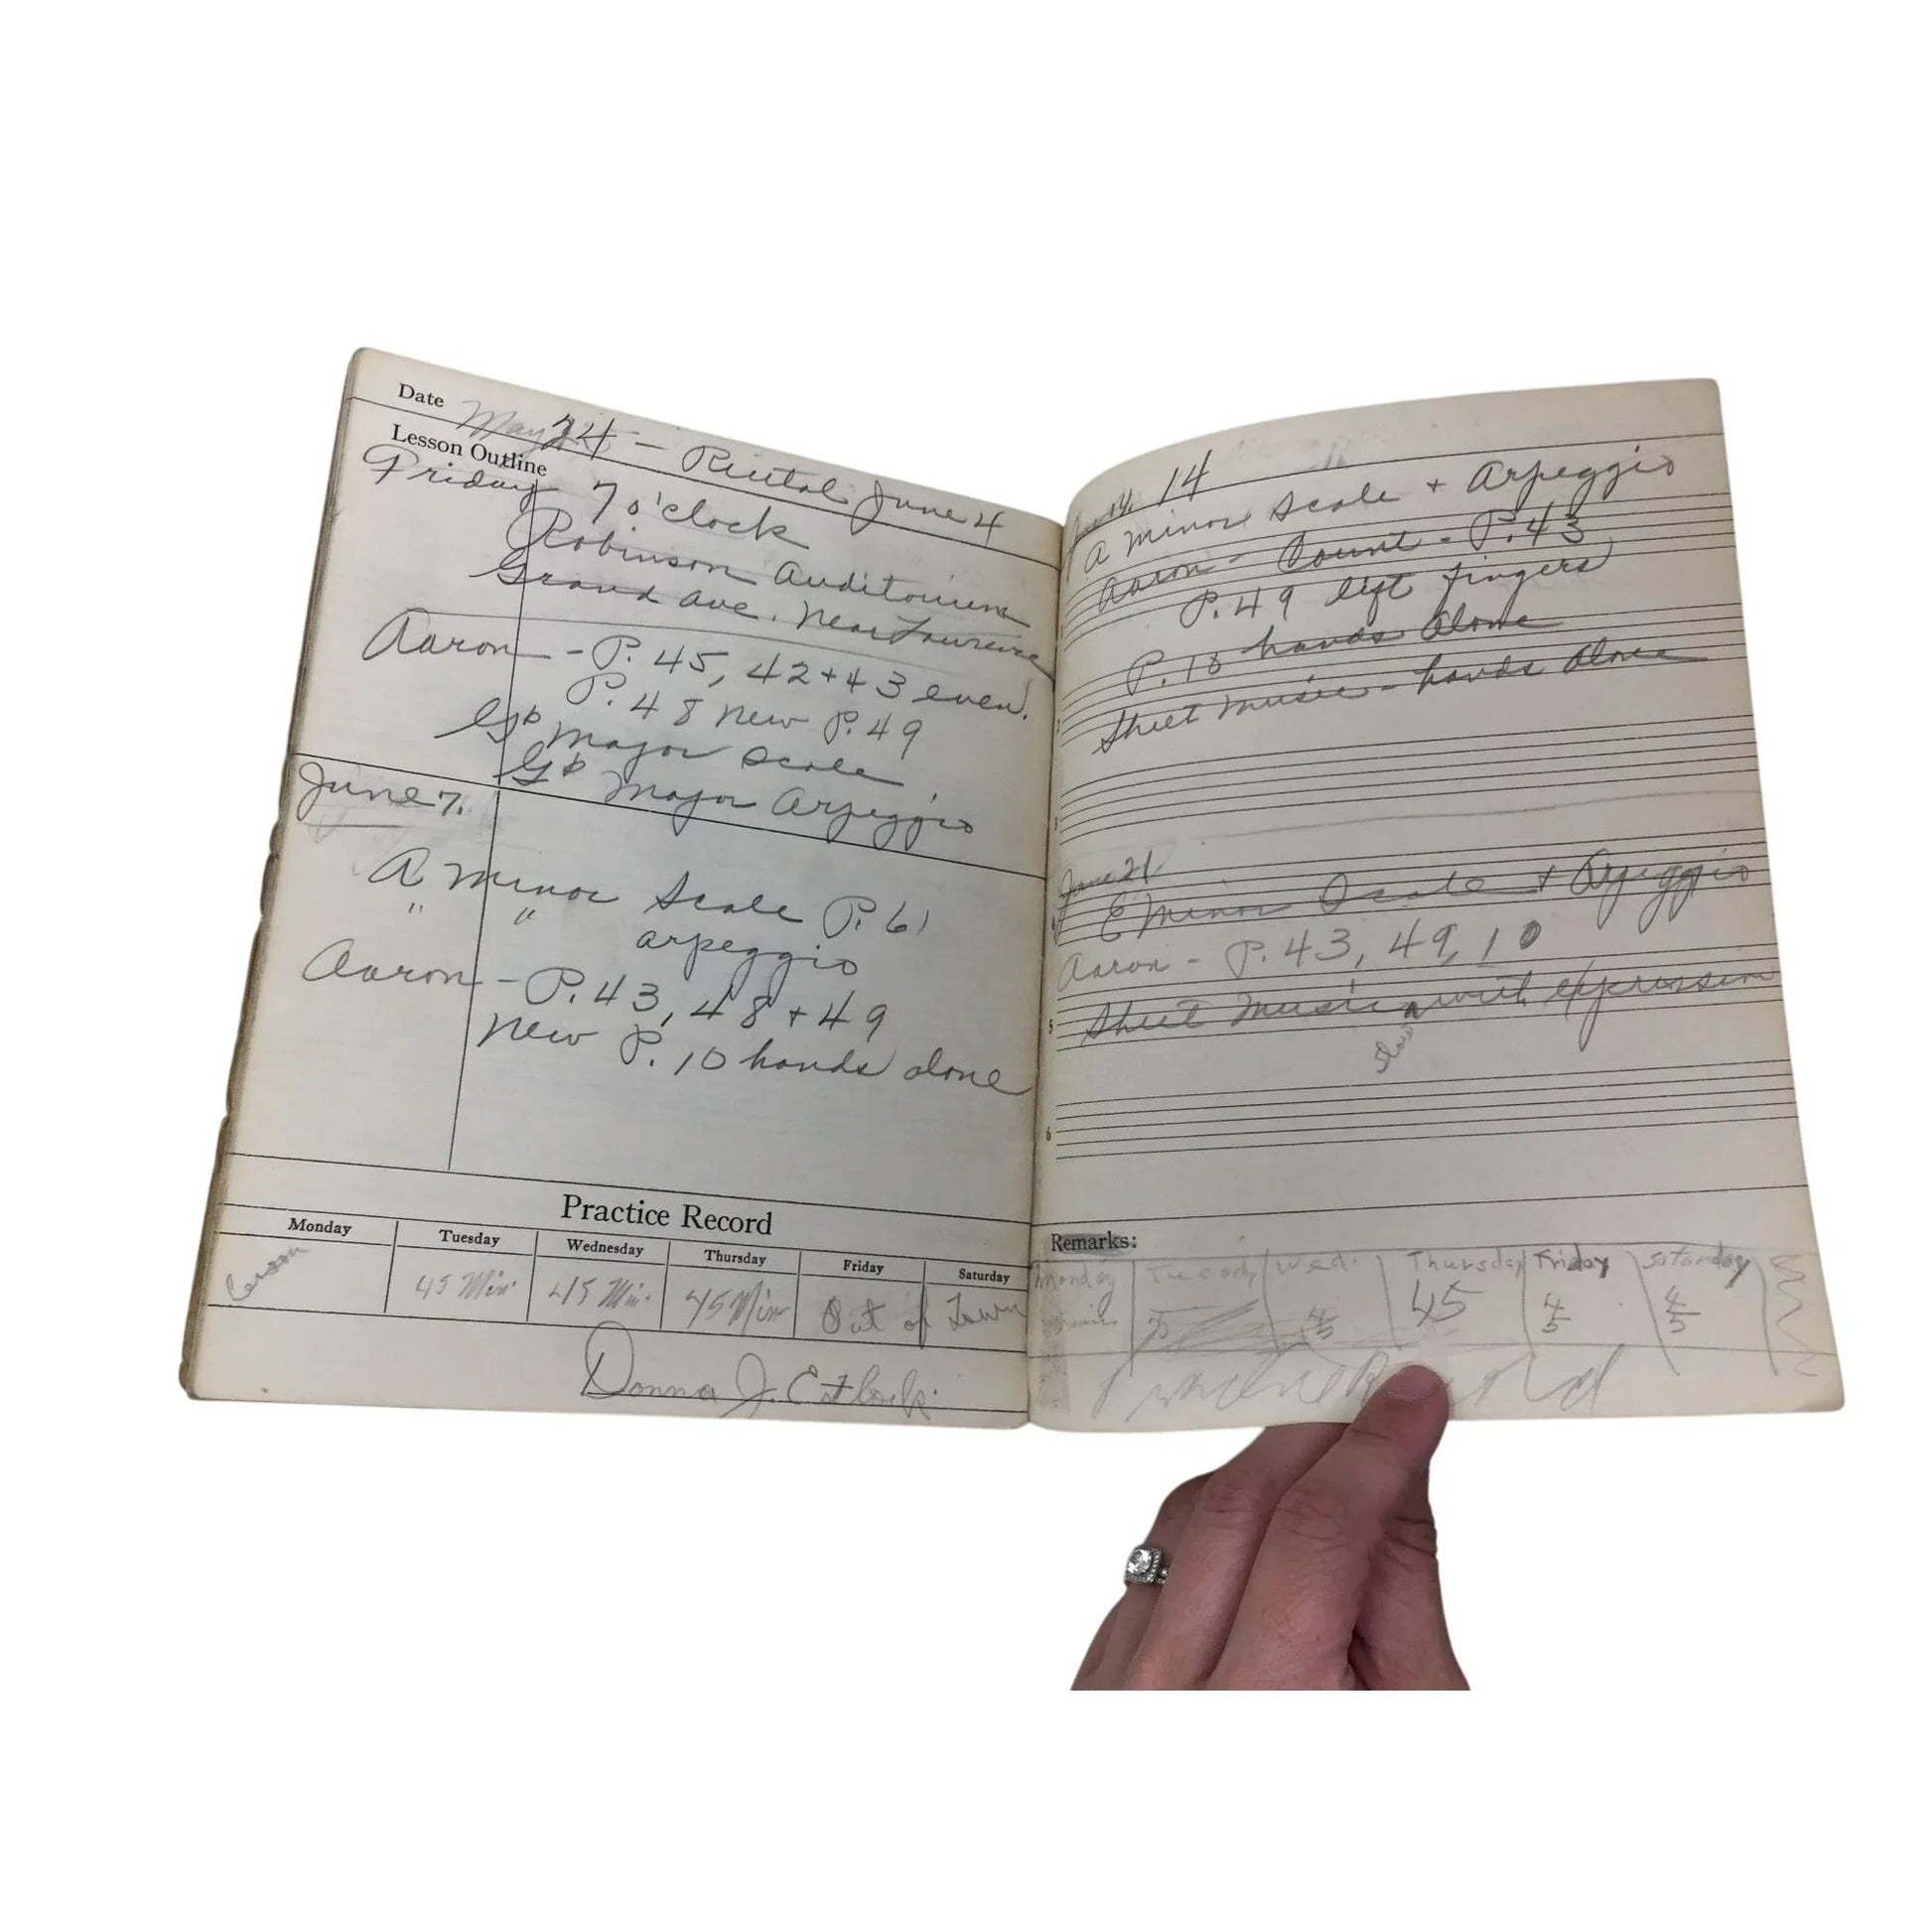 Date May 24 - Recital June 4
Lesson Outline
Friday 7 o'clock
Robinson Auditorium
Grand Ave. Near Lawrence
Aaron - P. 45, 42 + 43 even.
P. 48 New P. 49
G♭ Major Scale
G♭ Major Arpeggio
June 7.
A minor Scale P. 61
" " arpeggio
Aaron - P. 43, 48 + 49
New P. 10 hands alone
Practice Record
Monday Tuesday Wednesday Thursday Friday Saturday
Lesson 45 Min. 45 Min. 45 Min Out of Town
Donna J. Estlock
14
A minor Scale + Arpeggio
Aaron - Count - P. 43
P. 49 left fingers
P. 10 hands alone
Sheet Music - hands alone
3
June 21
4
E Minor Scale + Arpeggio
Aaron - P. 43, 49, 10
5
Sheet Music slow with expression
6
Remarks:
Monday Tuesday Wed. Thursday Friday Saturday
45 45 45 45
Practice Record